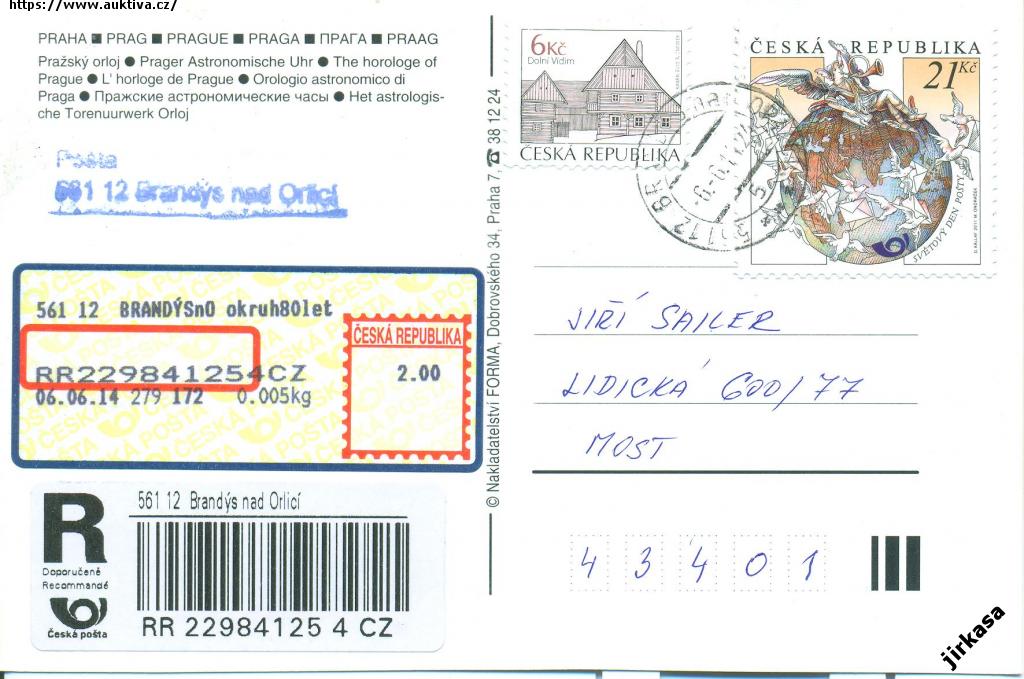 https://www.auktiva.cz/
PRAHA ■ PRAG ■ PRAGUE ■ PRAGA ■ ПРАГА ■ PRAAG
Pražský orloj ● Prager Astronomische Uhr ● The horologe of
Prague ● L' horloge de Prague ● Orologio astronomico di
Praga ● Пражские астрономические часы ● Het astrologis-
che Torenuurwerk Orloj
Pošta
561 12 Brandýs nad Orlicí
561 12 BRANDÝSnO okruh80let
RR229841254CZ
06.06.14 279 172 0.005kg
ČESKÁ REPUBLIKA
2.00
R
Doporučeně
Recommandé
Česká pošta
561 12 Brandýs nad Orlicí
RR 22984125 4 CZ
© Nakladatelství FORMA, Dobrovského 34, Praha 7, ☎ 38 12 24
6Kč
Dolní Vidim
ČESKÁ REPUBLIKA
ČESKÁ REPUBLIKA
21Kč
SVĚTOVÝ DEN POŠTY
JIŘÍ SAILER
LIDICKÁ 600/77
MOST
4 3 4 0 1
jirkasa